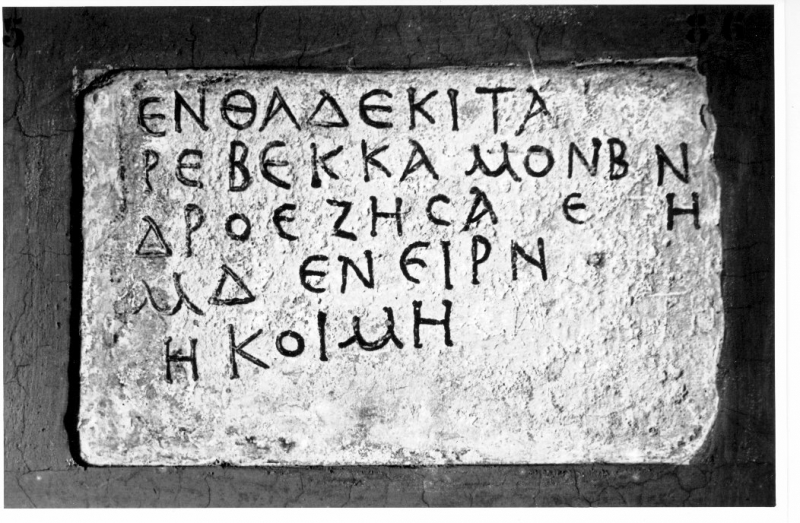 ΕΝΘΑΔΕΚΙΤΑ
ΡΕΒΕΚΚΑΜΟΝΒΝ
ΔΡΟΕΖΗCΑ Ε Η
ΜΔ ΕΝ ΕΙΡΝ
ΗΚΟΙΜΗ